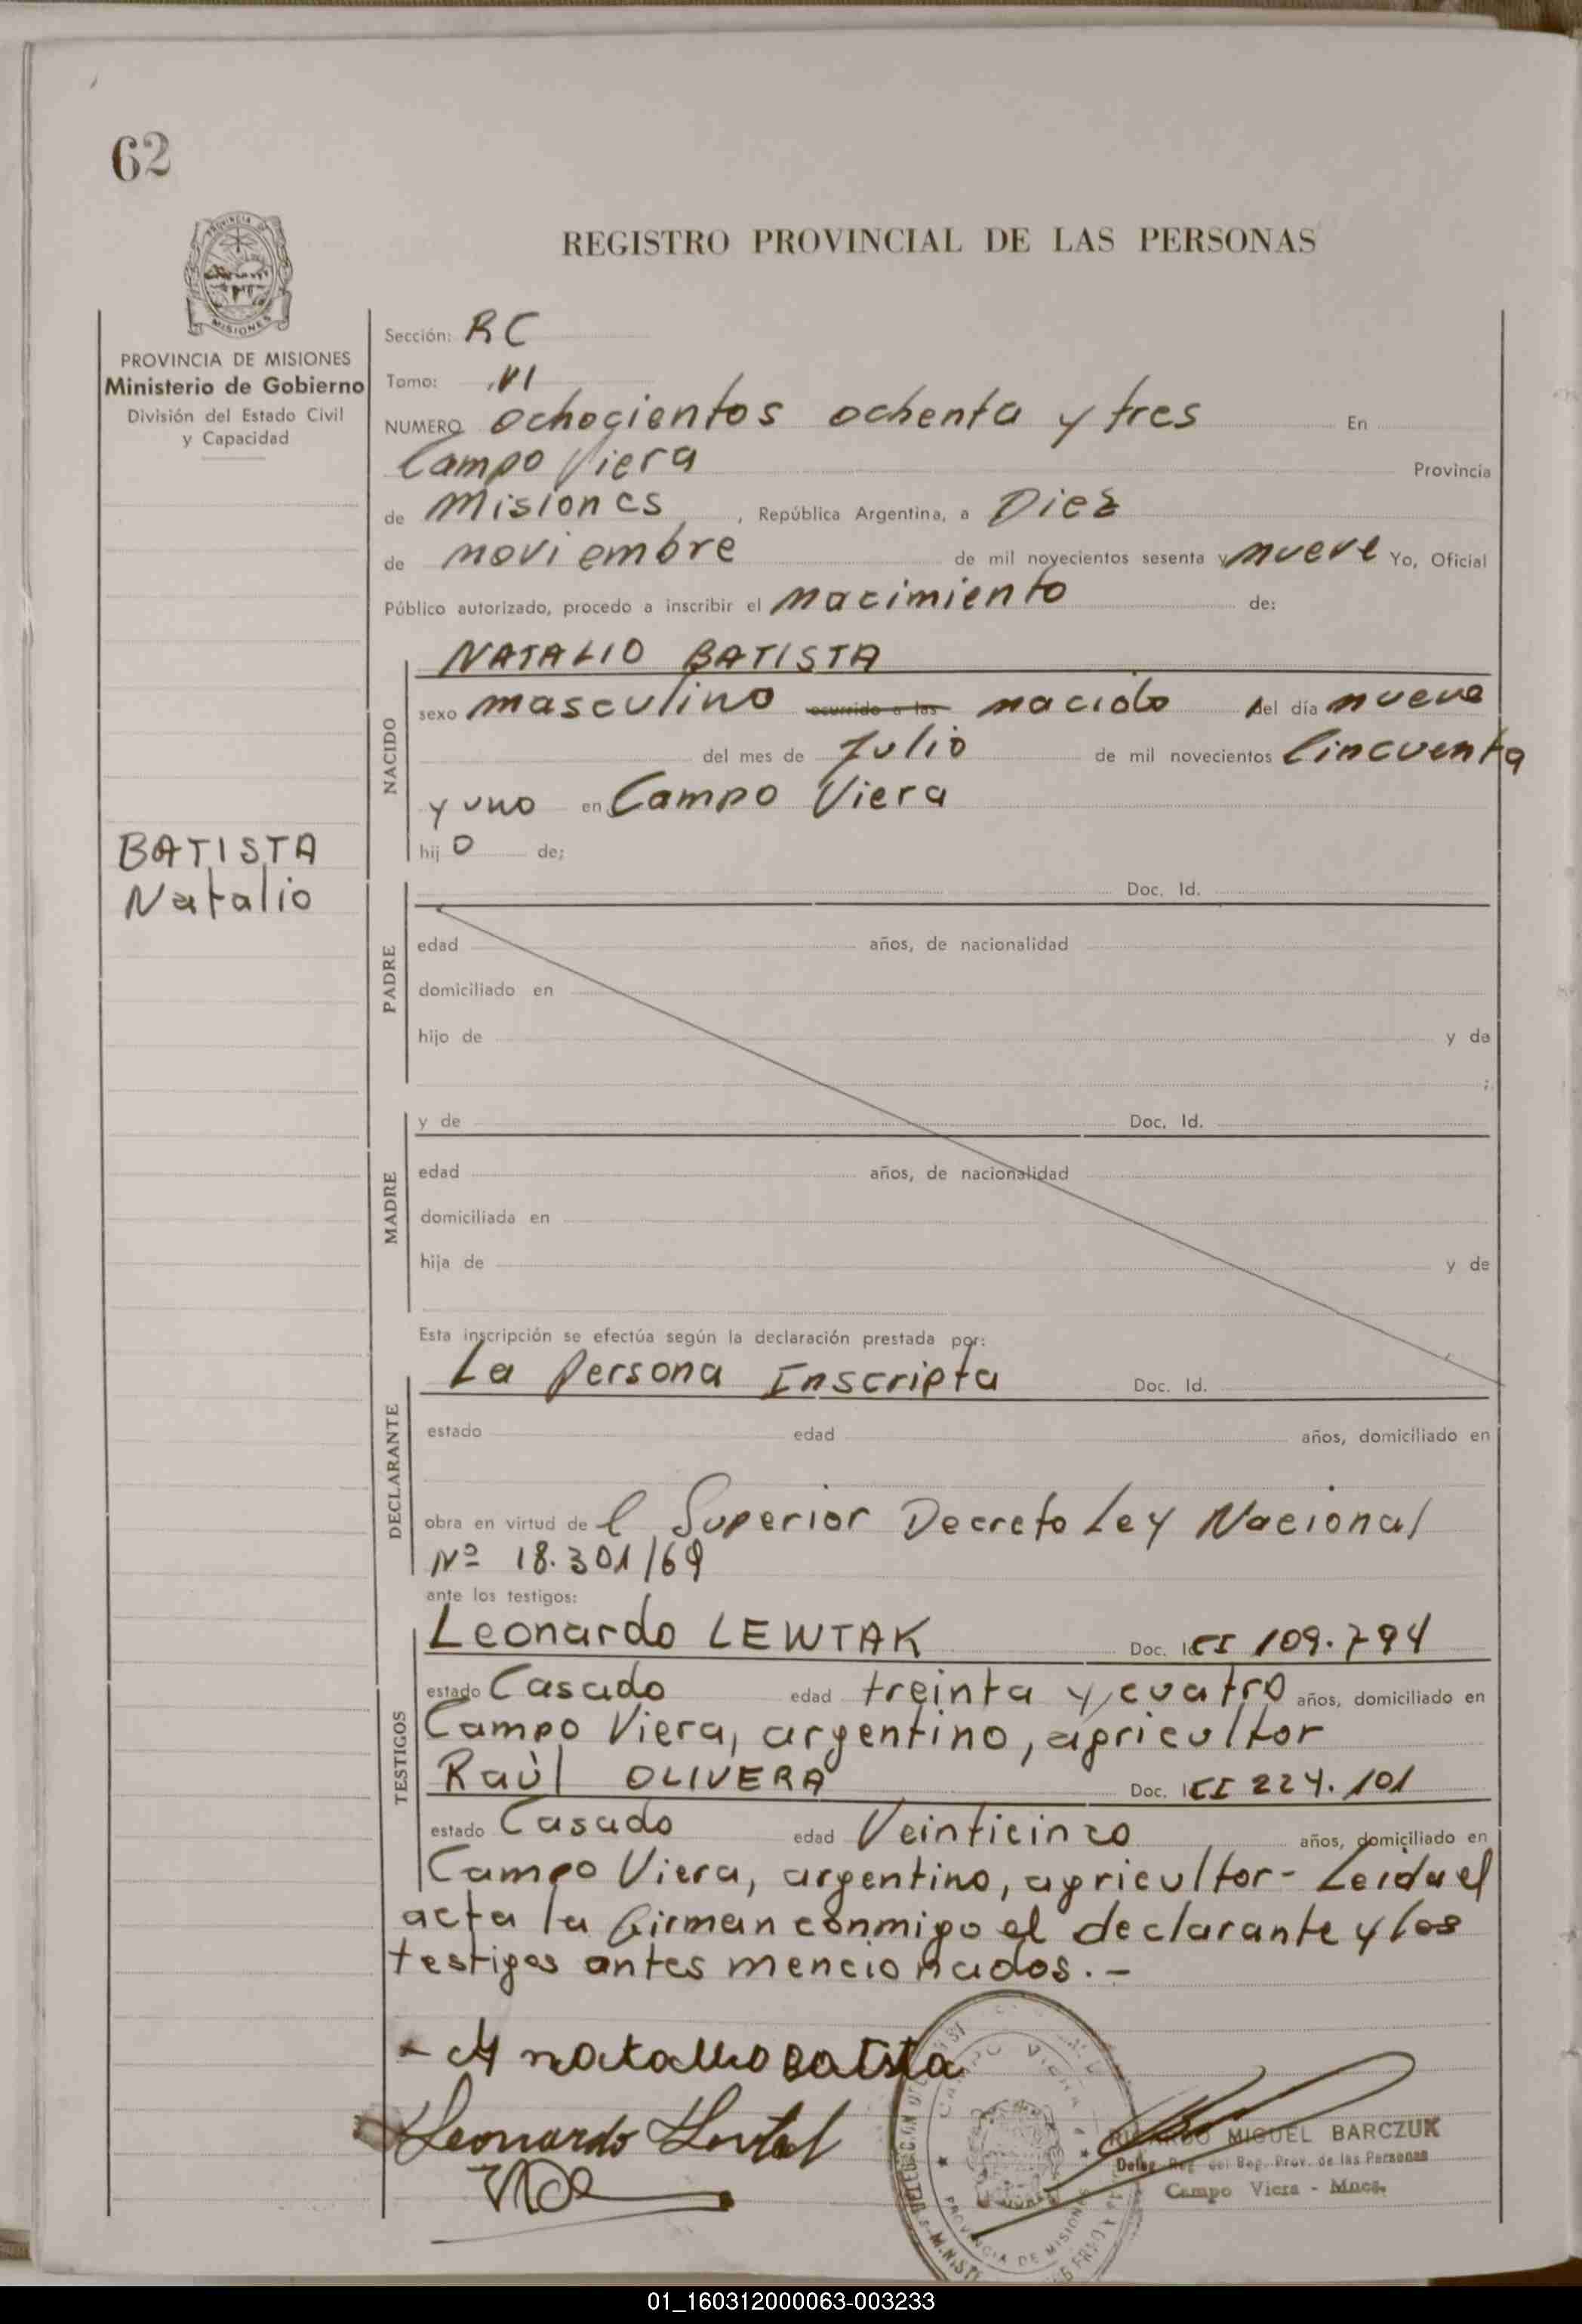 62
REGISTRO PROVINCIAL DE LAS PERSONAS
MISIONES
PROVINCIA DE MISIONES
Ministerio de Gobierno
División del Estado Civil
y Capacidad
BATISTA
Natalio
Sección: RC
Tomo: VI
NUMERO ochocientos ochenta y tres En
Campo Viera Provincia
de Misiones, República Argentina, a Diez
de noviembre de mil novecientos sesenta y nueve Yo, Oficial
Público autorizado, procedo a inscribir el nacimiento de:
NACIDO
NATALIO BATISTA
sexo masculino ocurrido a las nacido del día nueve
del mes de Julio de mil novecientos Cincuenta
y uno en Campo Viera
hijo de;
PADRE
Doc. Id.
edad años, de nacionalidad
domiciliado en
hijo de y de
;
MADRE
y de Doc. Id.
edad años, de nacionalidad
domiciliada en
hija de y de
Esta inscripción se efectúa según la declaración prestada por:
DECLARANTE
La Persona Inscripta Doc. Id.
estado edad años, domiciliado en
obra en virtud de l Superior Decreto Ley Nacional
Nº 18.301/69
ante los testigos:
TESTIGOS
Leonardo LEWTAK Doc. I CI 109.794
estado Casado edad treinta y cuatro años, domiciliado en
Campo Viera, argentino, agricultor
Raùl OLIVERA Doc. I CI 224.101
estado Casado edad Veinticinco años, domiciliado en
Campo Viera, argentino, agricultor- Leida el
acta la firman conmigo el declarante y los
testigos antes mencionados.-
natalio Batista
Leonardo
CAMPO VIERA
PROVINCIA DE MISIONES
RICARDO MIGUEL BARCZUK
Deleg. Reg. del Reg. Prov. de las Personas
Campo Viera - Mnes.
01_160312000063-003233